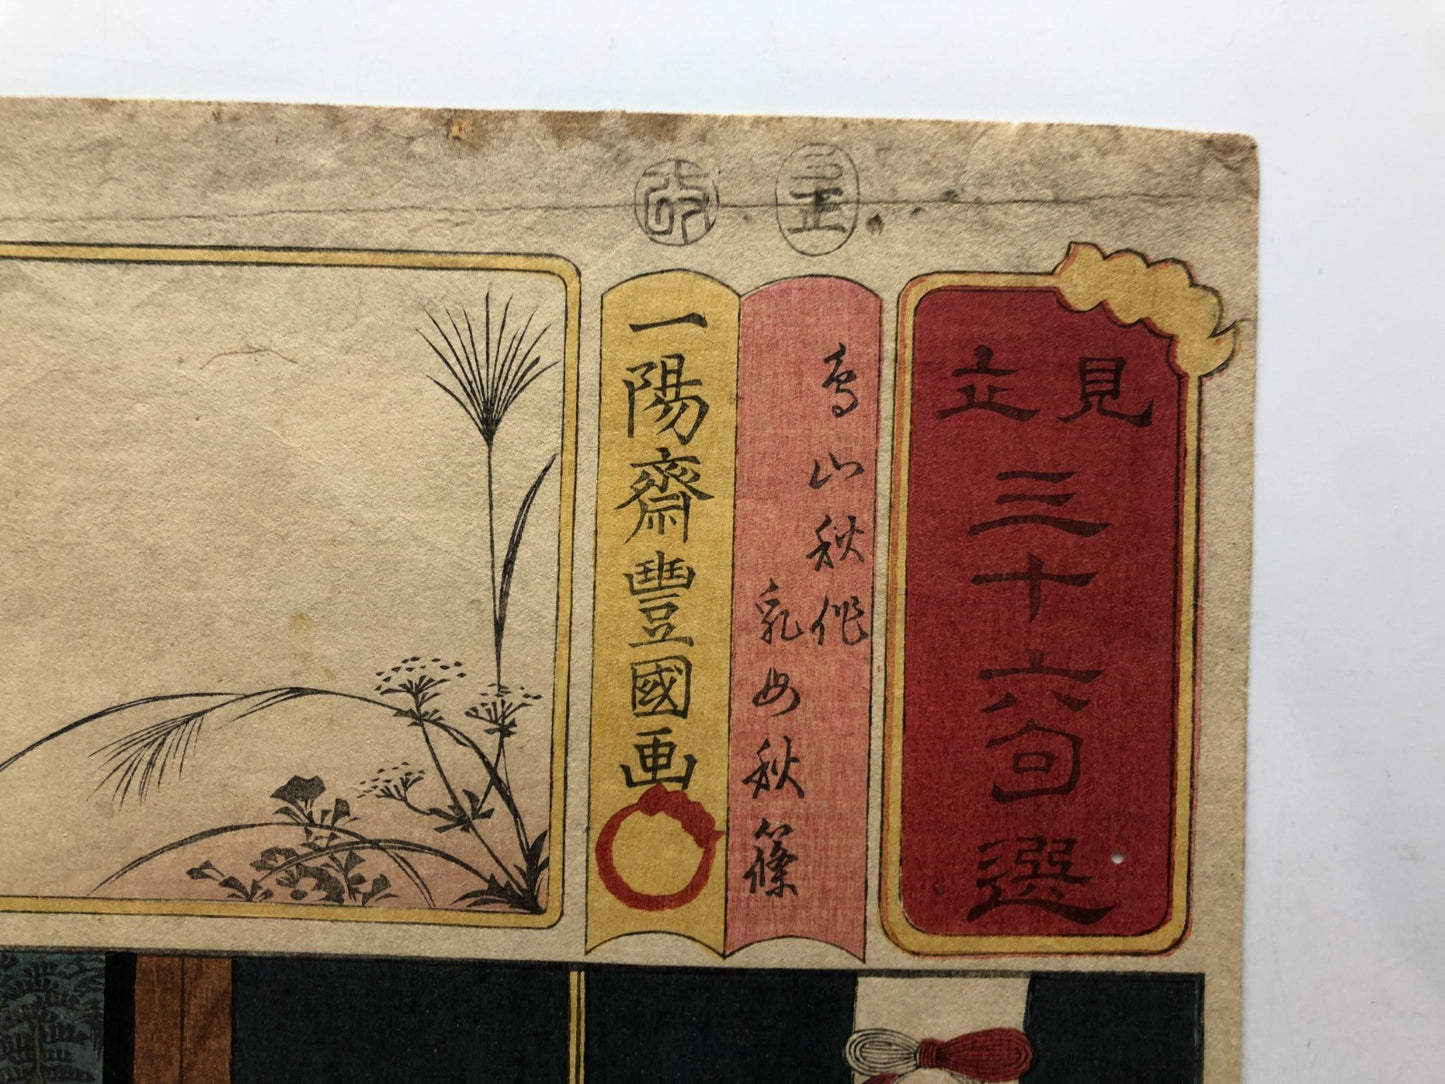 見立
三十六句選
鳥山秋作
乳母秋篠
一陽齋豐國画
改